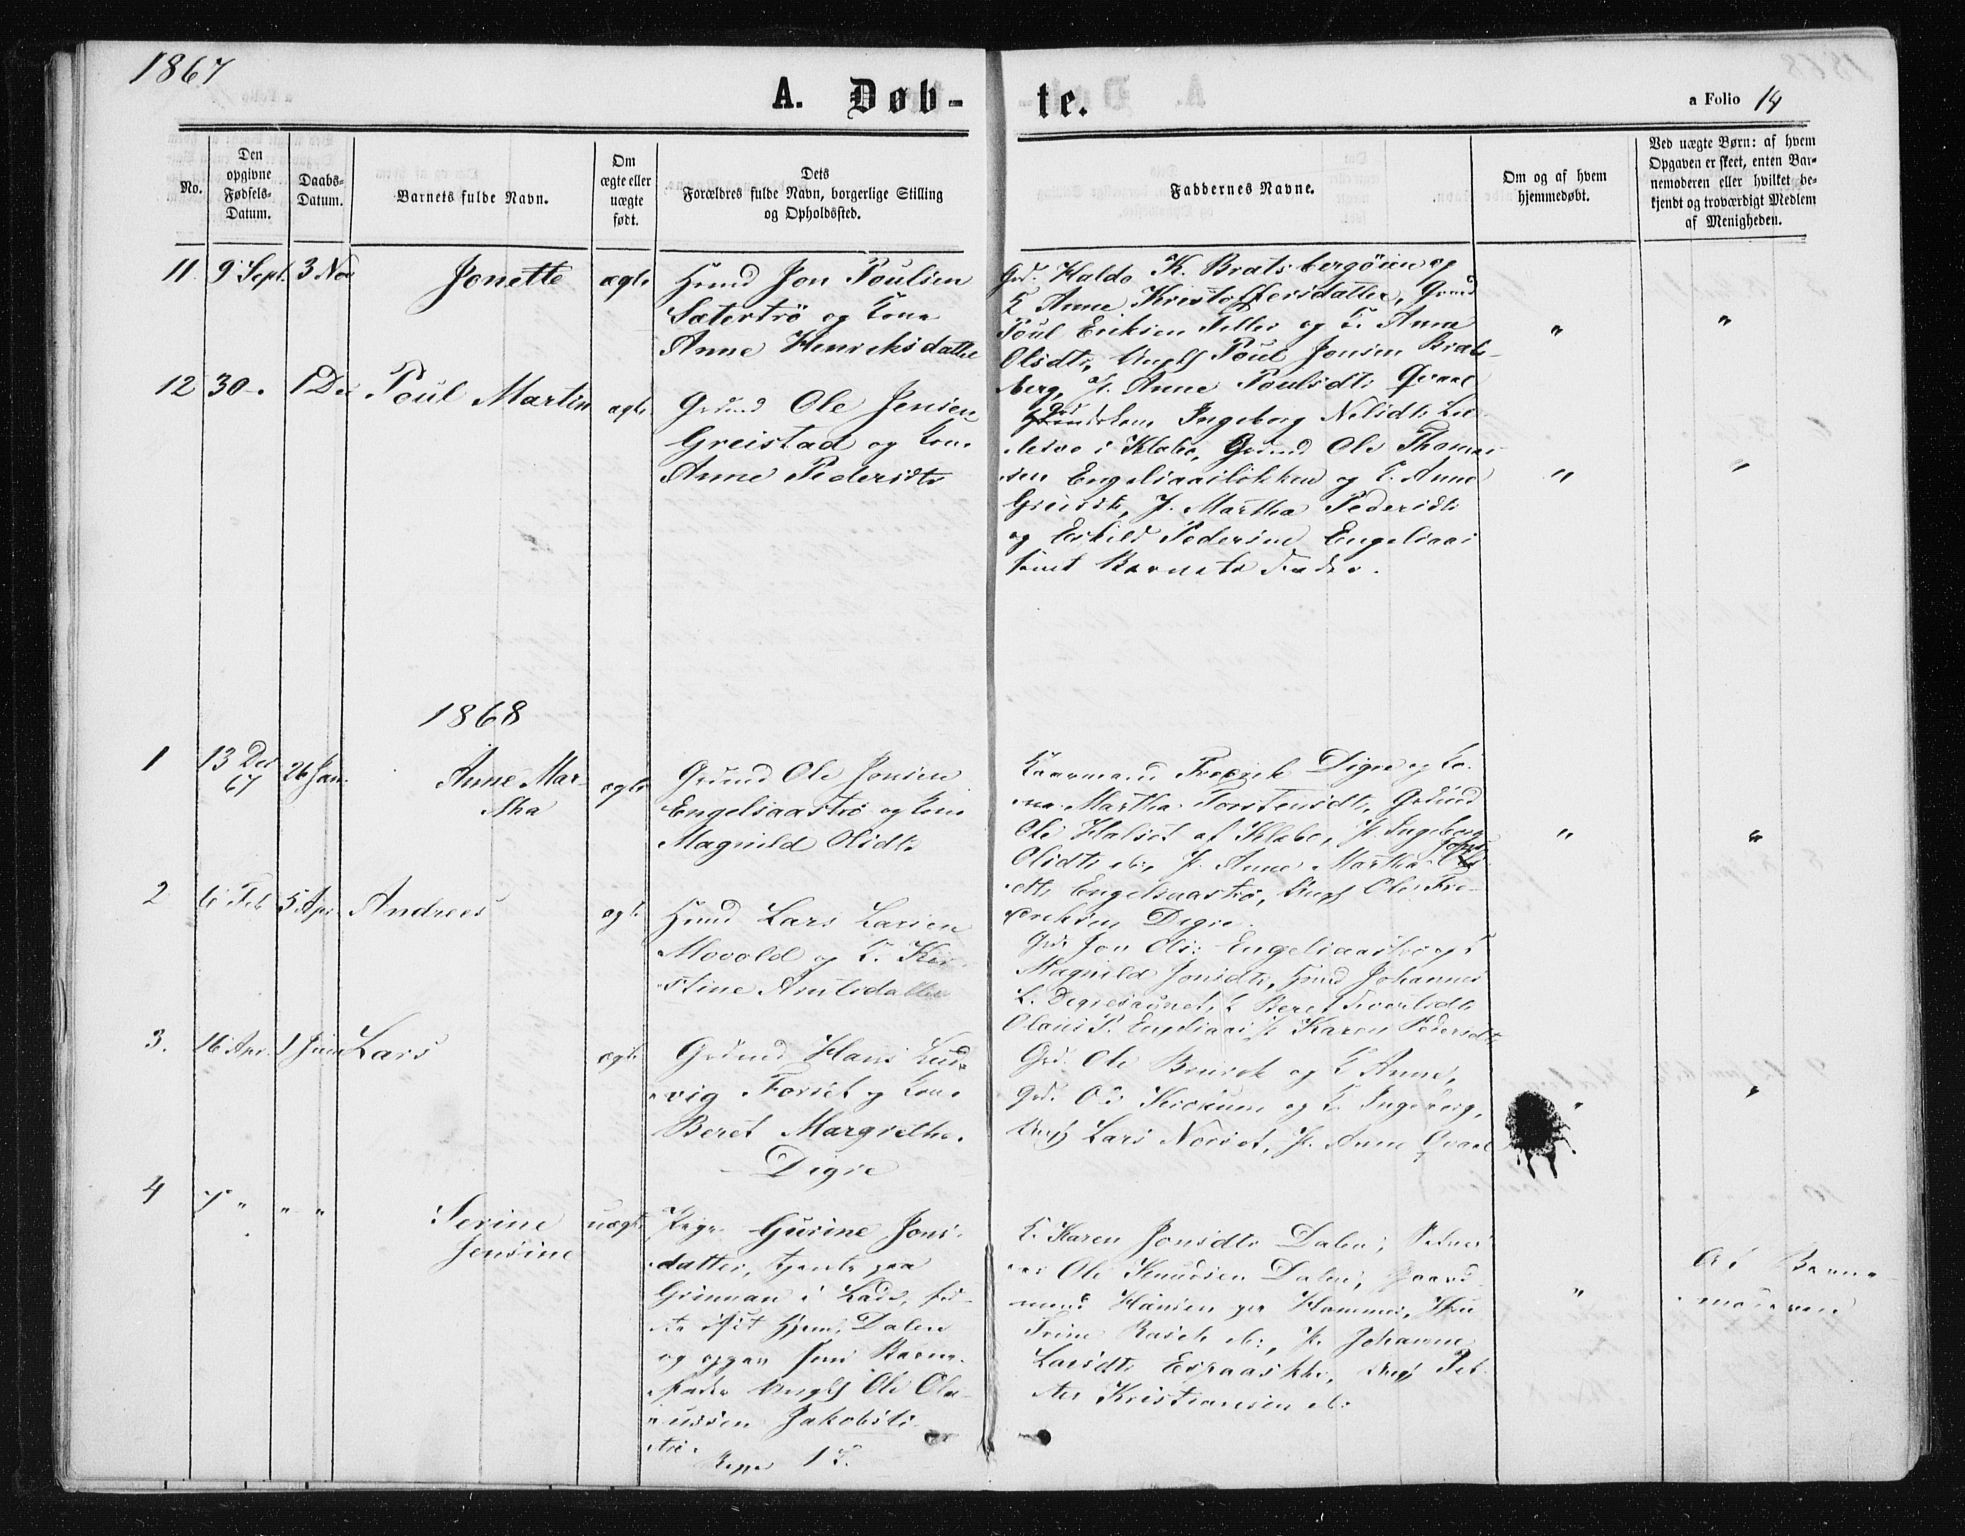 1867
A. Døb-
te.
a Folio 14
No.
Den
opgivne
Fødsels-
Datum.
Daabs-
Datum.
Barnets fulde Navn.
Om
ægte eller
uægte
født.
Dets
Forældres fulde Navn, borgerlige Stilling
og Opholdssted.
Faddernes Navne.
Om og af hvem
hjemmedøbt.
Ved uægte Børn: af hvem
Opgaven er skeet, enten Bar-
nemoderen eller hvilket be-
kjendt og troværdigt Medlem
af Menigheden.
11.
9 Sept.
3 Nov
Jonette
ægte
Hmd Jon Poulsen
Sætertrø og Kone
Anne Henriksdatter
Grd. Haldo K. Bratsbergøien og
K. Anne Kristoffersdatter, Grmd
Poul Eriksen Tiller og K. Anne
Olsdtr, Ungk Poul Jonsen Brats-
berg, P. Anne Poulsdtr Qvaal
"
"
12
30 -.
1 De
Poul Martin
ægte
Grmd Ole Jensen
Greistad og Kone
Anne Pedersdtr
Ingeborg Nilsdtr
i Klæbo, Grmd Ole Thomas-
sen Engelsaasløkken og K. Anne
P. Martha Pedersdtr
og Eskild Pedersen Engelsaas
samt Barnets Fader.
"
"
1868
1
13 Dec
67
26 Jan.
Anne Mar-
tha
ægte
Grmd Ole Jonsen
Engelsaastrø og Kone
Magnild Olsdtr
Kaarmand Fredrik Digre og Ko-
ne Martha Torstensdtr, Grmd
Ole Halset af Klæbo, P. Ingeborg
Olsdtr ib:, P. Anne Martha Jons
dtr Engelsaastrø, Ungk Ole Fre-
driksen Digre.
"
"
2
6 Feb
5 Apr
Andreas
ægte
Hmd Lars Larsen
Movold og K. Kir-
stine Arntsdatter
Grd. Jon Ols: Engelsaastrø og K
Magnild Jonsdtr, Hmd Johannes
L. Digresaunet, K Beret Sivertsdtr
Olaus P. Engelsaas P Karen Pedersdtr
3.
16 Apr.
1 Juni
Lars
ægte
Grmd Hans Lud-
vig Forset og Kone
Beret Margrethe
Digre
Grd. Ole Brurok og K Anne,
Grd. Ole Kroxum og K. Ingeborg,
Ungk Lars Norset, P. Anne Qvaal
"
"
4
7 "
" "
Serine
Jensine
uægte
Pige Gurine Jons-
datter, tjente paa
Grinnan i Lade, fød-
te sit Hjem, Dalen
og opgav som Barne-
fader Ungk Ole Ola-
ussen Jakobsli
trø.
K. Karen Jonsdtr Dalen,
Ole Knudsen Dalen, Gaard-
mand Hansen paa Hammer,
Trine Rasch ib:, P. Johanna
Larsdtr Espaasklev, Ungk Pet-
ter Kristiansen ib:
"
Af Barne-
moderen